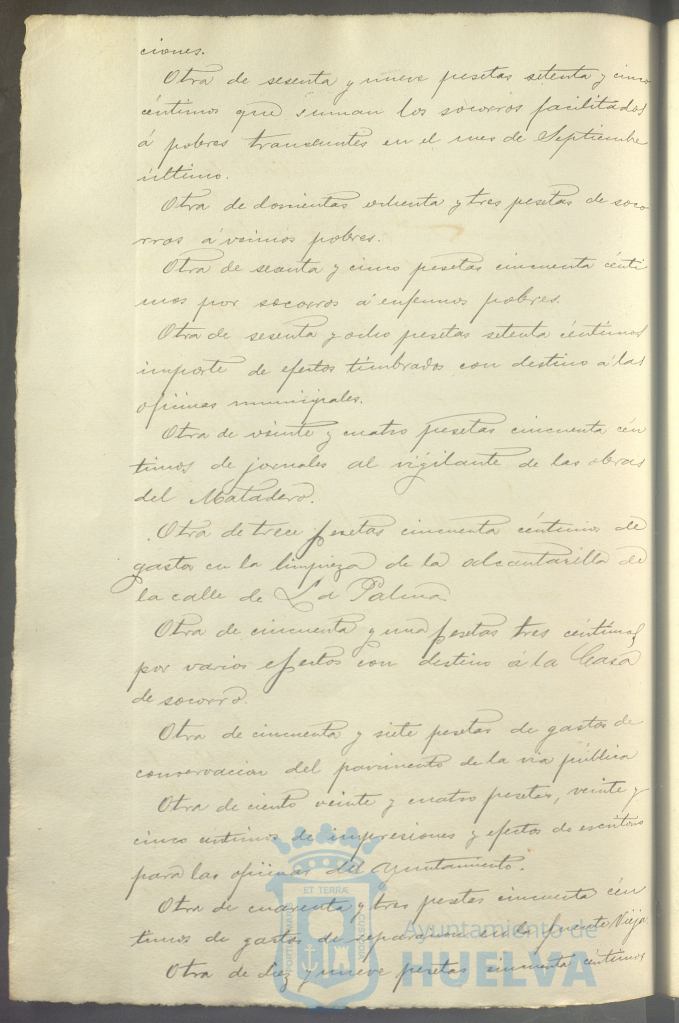 ciones.
Otra de sesenta y nueve pesetas setenta y cinco
céntimos que suman los socorros facilitados
á pobres transeuntes en el mes de Septiembre
último.
Otra de doscientas ochenta y tres pesetas de soco
rros á vecinos pobres.
Otra de seenta y cinco pesetas cincuenta cénti
mos por socorros á enfermos pobres.
Otra de sesenta y ocho pesetas setenta céntimos
importe de efectos timbrados con destino á las
oficinas municipales.
Otra de veinte y cuatro pesetas cincuenta cén
timos de jornales al vigilante de las obras
del Matadero.
Otra de trece pesetas cincuenta céntimos de
gastos en la limpieza de la alcantarilla de
la calle de La Palma.
Otra de cincuenta y una pesetas tres céntimos
por varios efectos con destino á la Casa
de socorro.
Otra de cincuenta y siete pesetas de gastos de
conservacion del pavimento de la via pública
Otra de ciento veinte y cuatro pesetas, veinte y
cinco centimos de impresiones y efectos de escritorio
para las oficinas del Ayuntamiento.
Otra de cuarenta y tres pesetas cincuenta cén
timos de gastos de reparacion en la fuente Vieja
Otra de diez y nueve pesetas cincuenta céntimos
ET TERRÆ
PORTUS MARIS
CUSTODIA
Ayuntamiento de
HUELVA